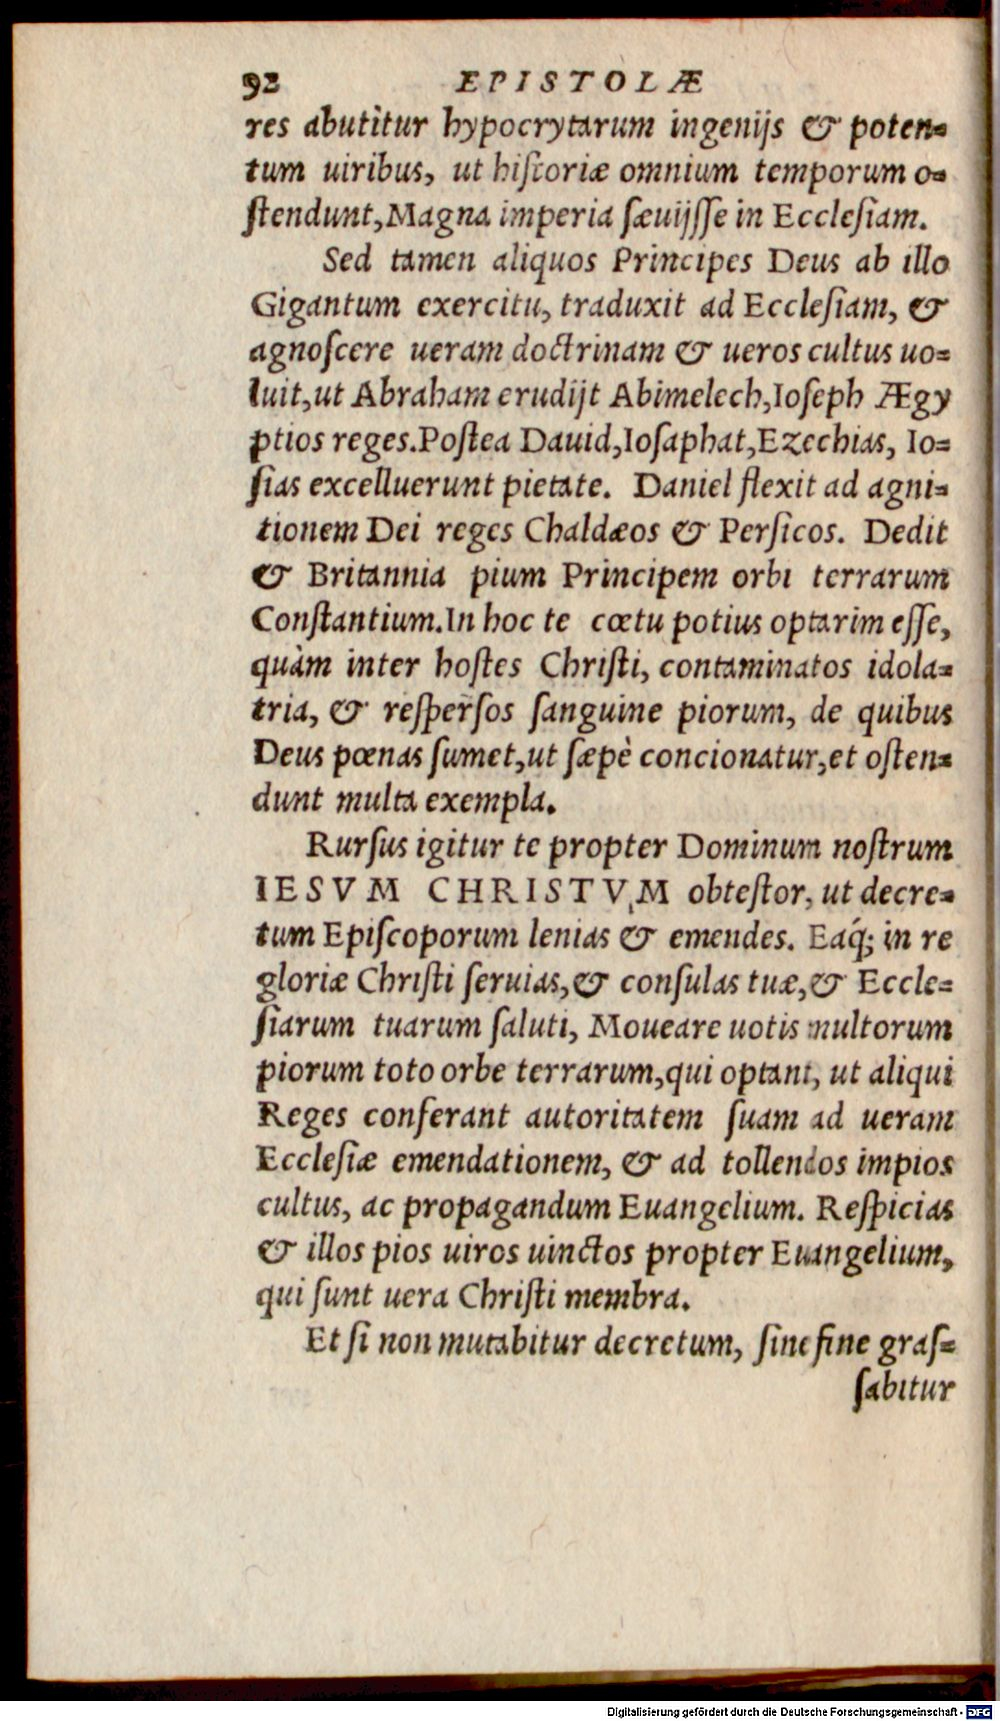 92 EPISTOLÆ
res abutìtur hypocrytarum ingenijs & poten-
tum uiribus, ut historiæ omnium temporum o-
ſtendunt, Magna imperia ſæuijſſe in Eccleſiam.
Sed tamen aliquos Principes Deus ab illo
Gigantum exercitu, traduxit ad Eccleſiam, &
agnoſcere ueram doctrinam & ueros cultus uo-
luit, ut Abraham erudijt Abimelech, Ioſeph Ægy
ptios reges. Poſtea Dauid, Ioſaphat, Ezechias, Io-
ſias excelluerunt pietate. Daniel flexit ad agni-
tionem Dei reges Chaldæos & Perſicos. Dedit
& Britannia pium Principem orbi terrarum
Conſtantium. In hoc te cœtu potius optarim eſſe,
quàm inter hoſtes Chriſti, contaminatos idola-
tria, & reſperſos ſanguine piorum, de quibus
Deus pœnas ſumet, ut ſæpè concionatur, et oſten-
dunt multa exempla.
Rurſus igitur te propter Dominum noſtrum
IESVM CHRISTVM obteſtor, ut decre-
tum Epiſcoporum lenias & emendes. Eaq́; in re
gloriæ Chriſti ſeruias, & conſulas tuæ, & Eccle-
ſiarum tuarum ſaluti, Moueare uotis multorum
piorum toto orbe terrarum, qui optant, ut aliqui
Reges conferant autoritatem ſuam ad ueram
Eccleſiæ emendationem, & ad tollendos impios
cultus, ac propagandum Euangelium. Reſpicias
& illos pios uiros uinctos propter Euangelium,
qui ſunt uera Chriſti membra.
Et ſi non mutabitur decretum, ſine fine graſ-
ſabitur
Digitalisierung gefördert durch die Deutsche Forschungsgemeinschaft - DFG